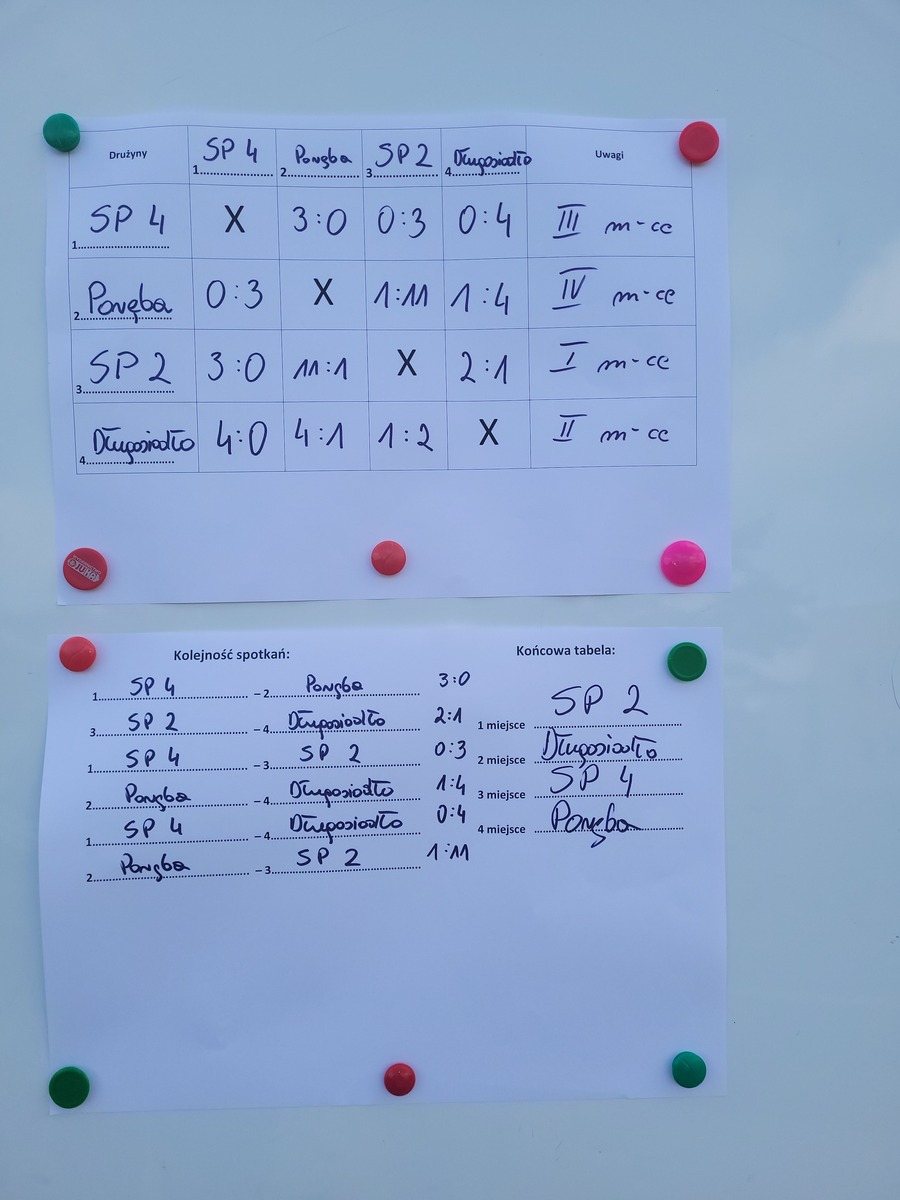 Drużyny 1. SP 4 2. Poręba 3. SP 2 4. Długosiodło Uwagi
1. SP 4 X 3:0 0:3 0:4 III m-ce
2. Poręba 0:3 X 1:11 1:4 IV m-ce
3. SP 2 3:0 11:1 X 2:1 I m-ce
4. Długosiodło 4:0 4:1 1:2 X II m-ce
Kolejność spotkań:
1. SP 4 – 2. Poręba 3:0
3. SP 2 – 4. Długosiodło 2:1
1. SP 4 – 3. SP 2 0:3
2. Poręba – 4. Długosiodło 1:4
1. SP 4 – 4. Długosiodło 0:4
2. Poręba – 3. SP 2 1:11
Końcowa tabela:
1 miejsce SP 2
2 miejsce Długosiodło
3 miejsce SP 4
4 miejsce Poręba